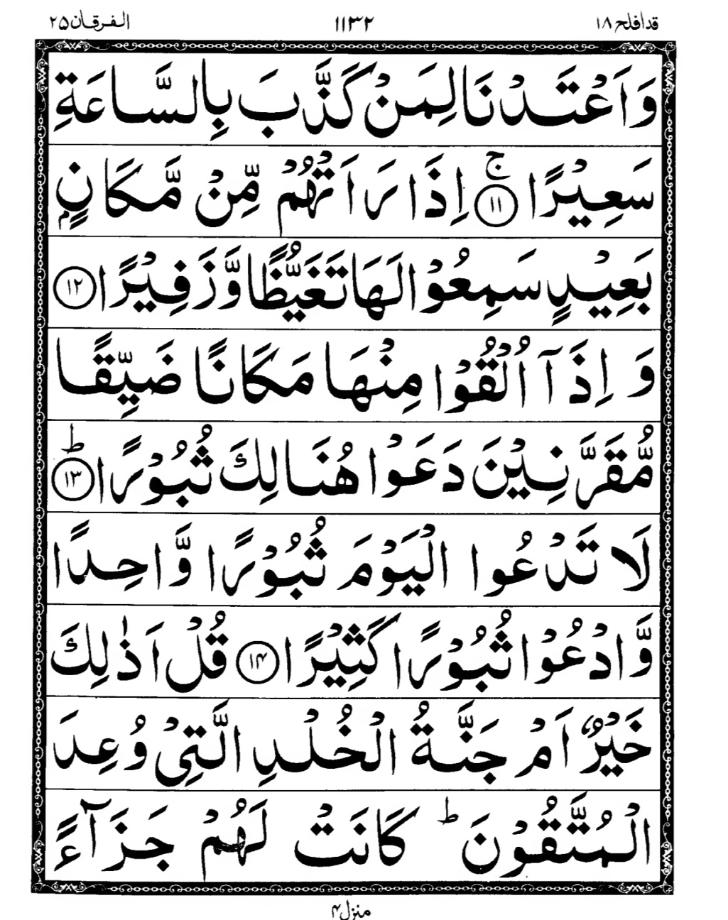 قدافلح ۱۸ ۱۱۳۲ الفرقان ۲۵
وَاَعْتَدْنَا لِمَنْ كَذَّبَ بِالسَّاعَةِ
سَعِيْرًا ۚ ﴿۱۱﴾ اِذَا رَاَتْهُمْ مِّنْ مَّكَانٍۭ
بَعِيْدٍ سَمِعُوْا لَهَا تَغَيُّظًا وَّزَفِيْرًا ﴿۱۲﴾
وَ اِذَآ اُلْقُوْا مِنْهَا مَكَانًا ضَيِّقًا
مُّقَرَّنِيْنَ دَعَوْا هُنَالِكَ ثُبُوْرًا ؕ ﴿۱۳﴾
لَا تَدْعُوا الْيَوْمَ ثُبُوْرًا وَّاحِدًا
وَّادْعُوْا ثُبُوْرًا كَثِيْرًا ﴿۱۴﴾ قُلْ اَذٰلِكَ
خَيْرٌ اَمْ جَنَّةُ الْخُلْدِ الَّتِيْ وُعِدَ
الْمُتَّقُوْنَ ؕ كَانَتْ لَهُمْ جَزَآءً
منزل ۴